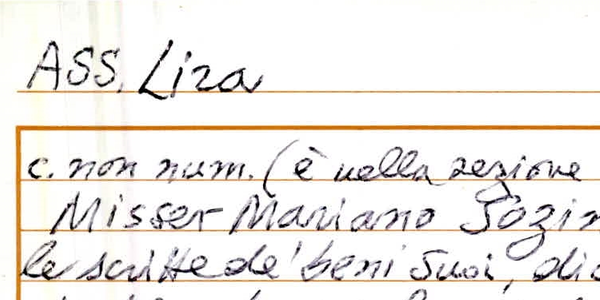 ASS. Lira
c. non num. (è nella sezione
Misser Mariano Sozin
le scritte de' beni suoi, dic